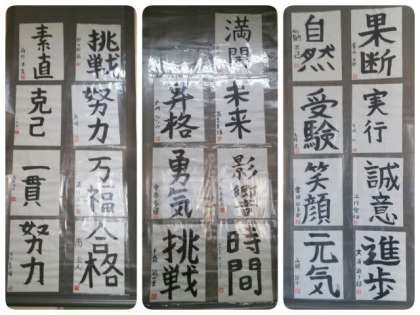 素直
挑戦
克己
努力
一貫
万福
努力
合格
満開
昇格
未来
勇気
影響
挑戦
時間
自然
果断
受験
実行
笑顔
誠意
元気
進歩